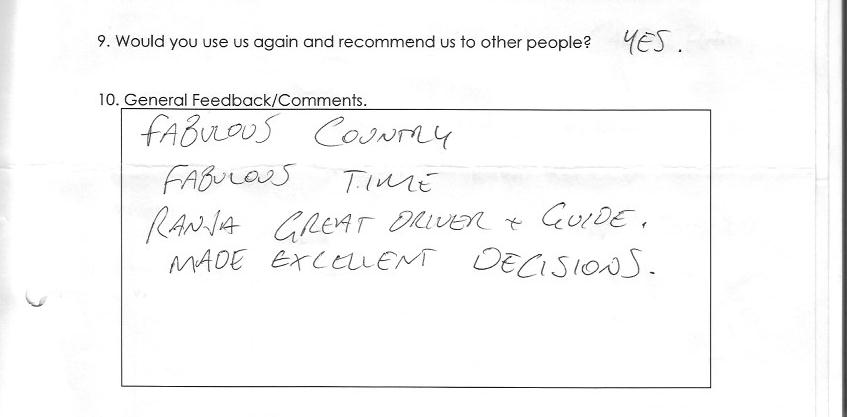 9. Would you use us again and recommend us to other people? YES.
10. General Feedback/Comments.
FABULOUS COUNTRY
FABULOUS TIME
RANJA GREAT DRIVER + GUIDE.
MADE EXCELLENT DECISIONS.